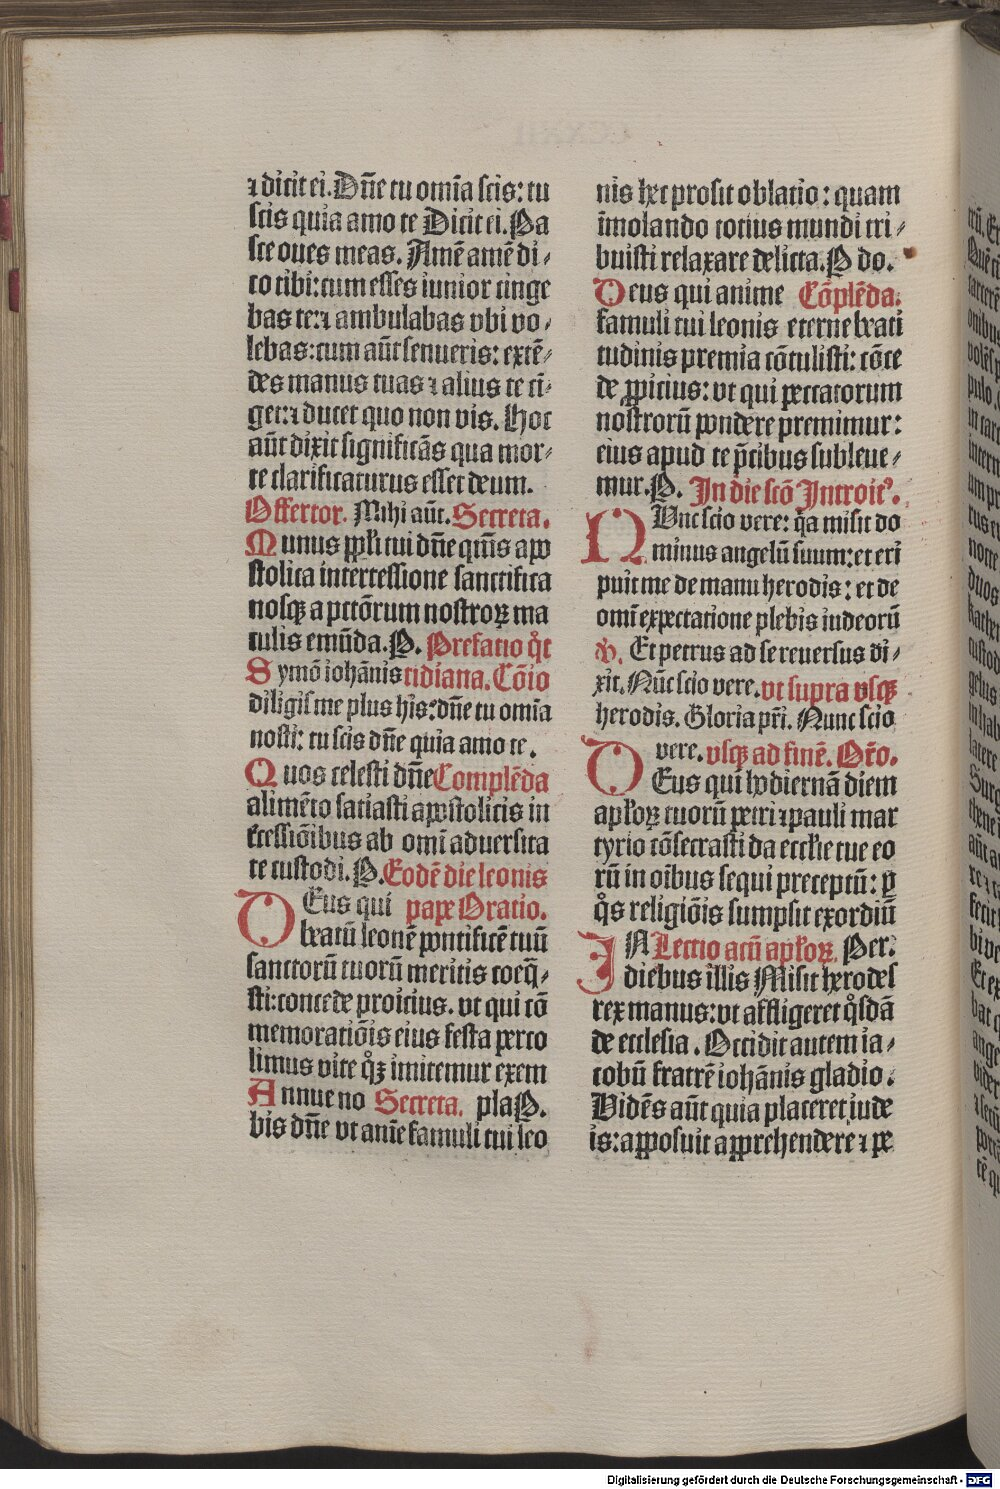 ⁊ dicit ei. Dñe tu om̄ia scis: tu
scis quia amo te Dicit ei. Pa
sce oues meas. Amē amē di⸗
co tibi: cum esses iunior cinge
bas te: ⁊ ambulabas vbi vo⸗
lebas: cum aūt senueris: extē⸗
des manus tuas ⁊ alius te cī⸗
get: ⁊ ducet quo non vis. Hoc
aūt dixit significās qua mor⸗
te clarificaturus esset deum.
Offertor. Mihi aūt. Secreta.
Munus ppłi tui dñe qm̄s apo
stolica intercessione sanctifica
nosqꝫ a pctōrum nostroꝝ ma
culis emūda. P. Prefatio qͦt
Symō iohānis tidiana. Cōio
diligis me plus his: dñe tu om̄ia
nosti: tu scis dñe quia amo te.
Quos celesti dñe Complēda
alimēto satiasti apostolicis in
tcessiōibus ab omī aduersita
te custodi. P. Eodē die leonis
DEus qui pape Oratio.
beatū leonē pontificē tuū
sanctorū tuorū meritis coeq̄⸗
sti: concede proicius. vt qui cō
memoratiōis eius festa perco
limus vite qͦꝫ imitemur exem
Annue no Secreta. pla P.
bis dñe vt anīe famuli tui leo
nis hec prosit oblatio: quam
īmolando totius mundi tri⸗
buisti relaxare delicta. P do.
Deus qui anime Cōplēda.
famuli tui leonis eterne beati
tudinis premia cōtulisti: cōce
de ꝓpicius: vt qui peccatorum
nostrorū pondere premimur:
eius apud te p̄cibus subleue⸗
mur. P. In die scō Introitꝰ.
NVnc scio vere: q̄a misit do
minus angelū suum: et eri
puit me de manu herodis: et de
omī expectatione plebis iudeorū
℣. Et petrus ad se reuersus di⸗
xit. Nūc scio vere. vt supra vsqꝫ
herodis. Gloria pr̄i. Nunc scio
vere. vsqꝫ ad finē. Or̄o.
DEus qui hodiernā diem
apłoꝝ tuorū petri ⁊ pauli mar
tyrio cōsecrasti da eccłie tue eo
rū in oībus sequi preceptū: ꝑ
qͦs religiōis sumpsit exordiū
IN Lectio actū apłoꝝ. Per:
diebus illis Misit herodes
rex manus: vt affligeret qͦsdā
de ecclesia. Occidit autem ia⸗
cobū fratrē iohānis gladio.
Vidēs aūt quia placeret iude
is: apposuit apprehendere ⁊ pe
Digitalisierung gefördert durch die Deutsche Forschungsgemeinschaft - DFG